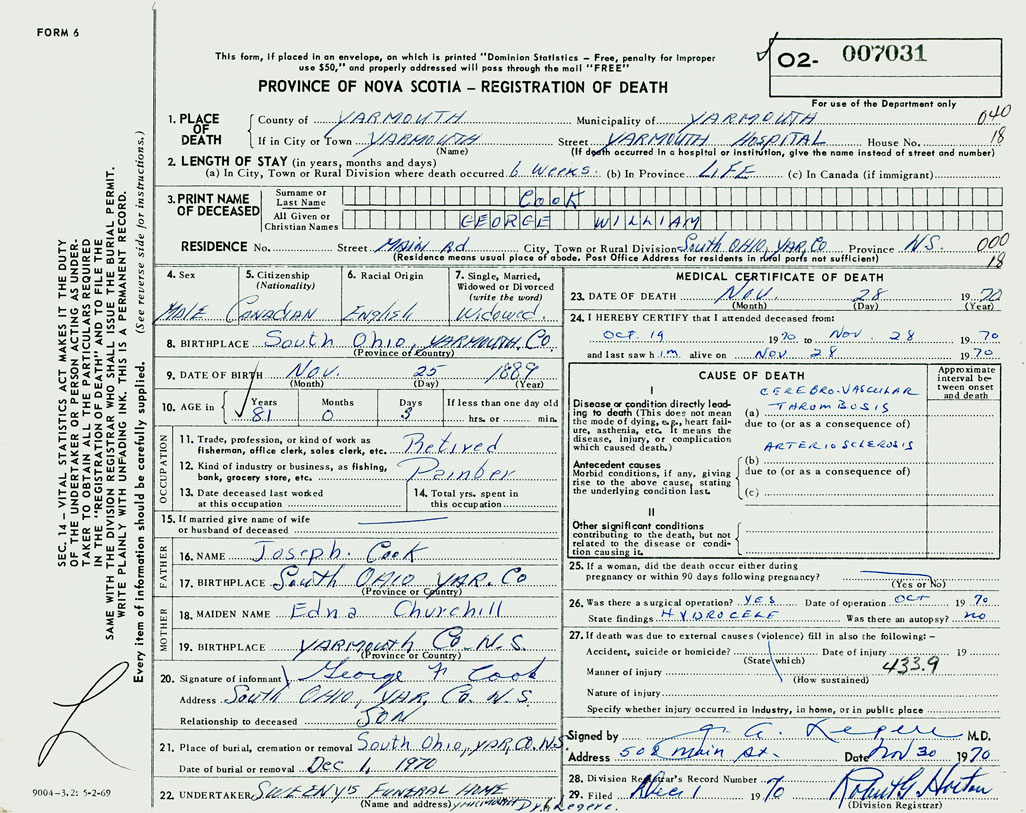 FORM 6
This form, if placed in an envelope, on which is printed "Dominion Statistics – Free, penalty for improper
use $50," and properly addressed will pass through the mail "FREE"
02- 007031
PROVINCE OF NOVA SCOTIA – REGISTRATION OF DEATH
For use of the Department only
1. PLACE OF DEATH
County of YARMOUTH Municipality of YARMOUTH 040
If in City or Town YARMOUTH Street YARMOUTH HOSPITAL House No. 18
(Name) (If death occurred in a hospital or institution, give the name instead of street and number)
2. LENGTH OF STAY (in years, months and days)
(a) In City, Town or Rural Division where death occurred 6 WEEKS (b) In Province LIFE (c) In Canada (if immigrant)
3. PRINT NAME OF DECEASED
Surname or Last Name COOK
All Given or Christian Names GEORGE WILLIAM
RESIDENCE No. Street MAIN Rd City, Town or Rural Division South OHIO, YAR, CO Province N.S. 000
(Residence means usual place of abode. Post Office Address for residents in rural parts not sufficient) 18
4. Sex MALE
5. Citizenship (Nationality) CANADIAN
6. Racial Origin English
7. Single, Married, Widowed or Divorced (write the word) Widowed
8. BIRTHPLACE South Ohio, YARMOUTH Co.
(Province or Country)
9. DATE OF BIRTH Nov. 25 1889
(Month) (Day) (Year)
10. AGE in Years Months Days If less than one day old
81 0 3 hrs. or min.
OCCUPATION
11. Trade, profession, or kind of work as
fisherman, office clerk, sales clerk, etc. Retired
12. Kind of industry or business, as fishing,
bank, grocery store, etc.
13. Date deceased last worked
at this occupation
14. Total yrs. spent in
this occupation
15. If married give name of wife
or husband of deceased
FATHER
16. NAME Joseph Cook
17. BIRTHPLACE South OHIO YAR. Co
(Province or Country)
MOTHER
18. MAIDEN NAME Edna Churchill
19. BIRTHPLACE YARMOUTH Co. N.S.
(Province or Country)
20. Signature of informant George F Cook
Address South OHIO, YAR, Co. N.S.
Relationship to deceased SON
21. Place of burial, cremation or removal South Ohio, YAR, CO. N.S.
Date of burial or removal Dec 1, 1970
22. UNDERTAKER SWEENY'S FUNERAL HOME
(Name and address) YARMOUTH Dr. Legere.
MEDICAL CERTIFICATE OF DEATH
23. DATE OF DEATH Nov. 28 1970
(Month) (Day) (Year)
24. I HEREBY CERTIFY that I attended deceased from:
OCT. 19 1970 to Nov. 28 1970
and last saw him alive on Nov 28 1970
CAUSE OF DEATH
Approximate interval between onset and death
I
Disease or condition directly leading to death (This does not mean the mode of dying, e.g., heart failure, asthenia, etc. It means the disease, injury, or complication which caused death.)
CEREBRO-VASCULAR
(a) THROMBOSIS
due to (or as a consequence of)
ARTERIOSCLEROSIS
Antecedent causes
Morbid conditions, if any, giving rise to the above cause, stating the underlying condition last.
(b)
due to (or as a consequence of)
(c)
II
Other significant conditions
contributing to the death, but not related to the disease or condition causing it.
25. If a woman, did the death occur either during
pregnancy or within 90 days following pregnancy?
(Yes or No)
26. Was there a surgical operation? YES Date of operation OCT 1970
State findings HYDROCELE Was there an autopsy? NO
27. If death was due to external causes (violence) fill in also the following: –
Accident, suicide or homicide? Date of injury 19
(State which) 433.9
Manner of injury
(How sustained)
Nature of injury
Specify whether injury occurred in industry, in home, or in public place
Signed by J. A. Legere M.D.
Address 502 Main St. Date Nov 30 1970
28. Division Registrar's Record Number
29. Filed Dec 1 1970 Robert G Horton
(Division Registrar)
SEC. 14 – VITAL STATISTICS ACT MAKES IT THE DUTY
OF THE UNDERTAKER OR PERSON ACTING AS UNDER-
TAKER TO OBTAIN ALL THE PARTICULARS REQUIRED
IN THE "REGISTRATION OF DEATH" AND TO FILE THE
SAME WITH THE DIVISION REGISTRAR WHO SHALL ISSUE THE BURIAL PERMIT.
WRITE PLAINLY WITH UNFADING INK. THIS IS A PERMANENT RECORD.
Every item of information should be carefully supplied. (See reverse side for instructions.)
9004-3.2: 5-2-69